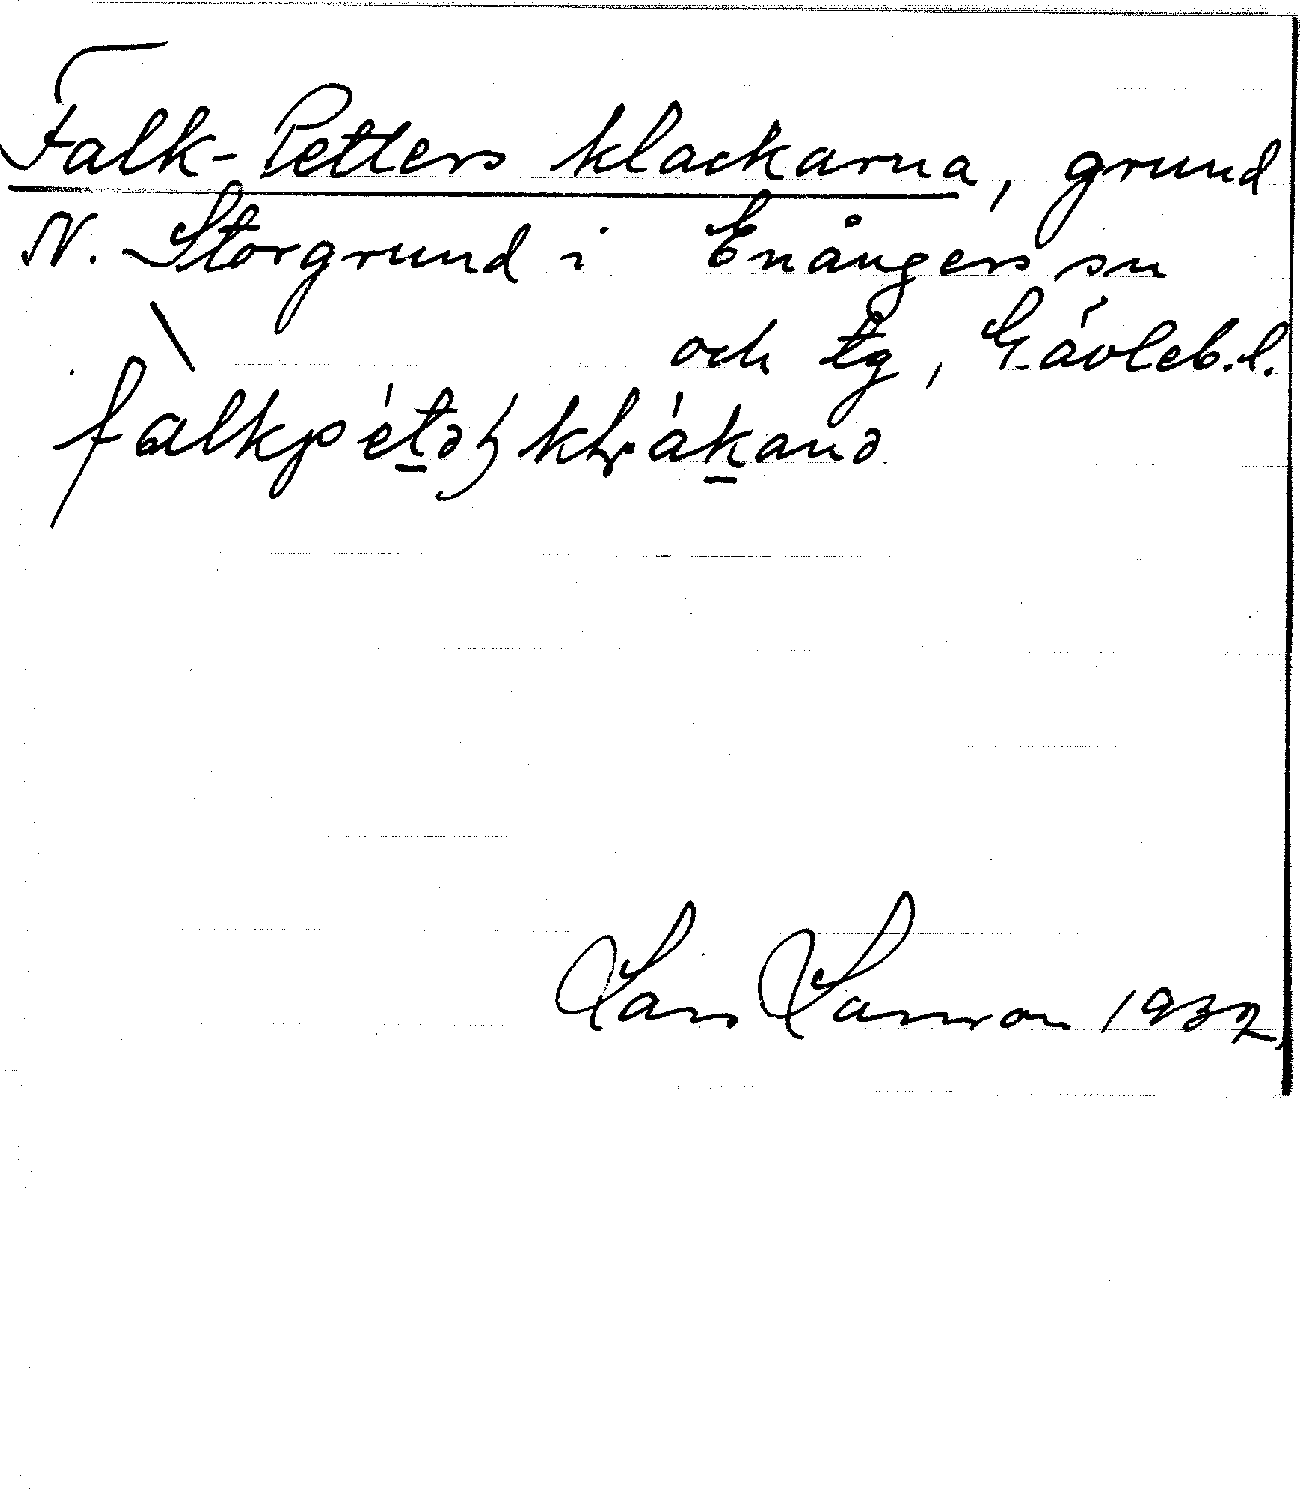 Falk-Petters klackarna, grund
N. Storgrund i Enångers sn
och tg, Gävleb.l.
Lars Larsson 1932.